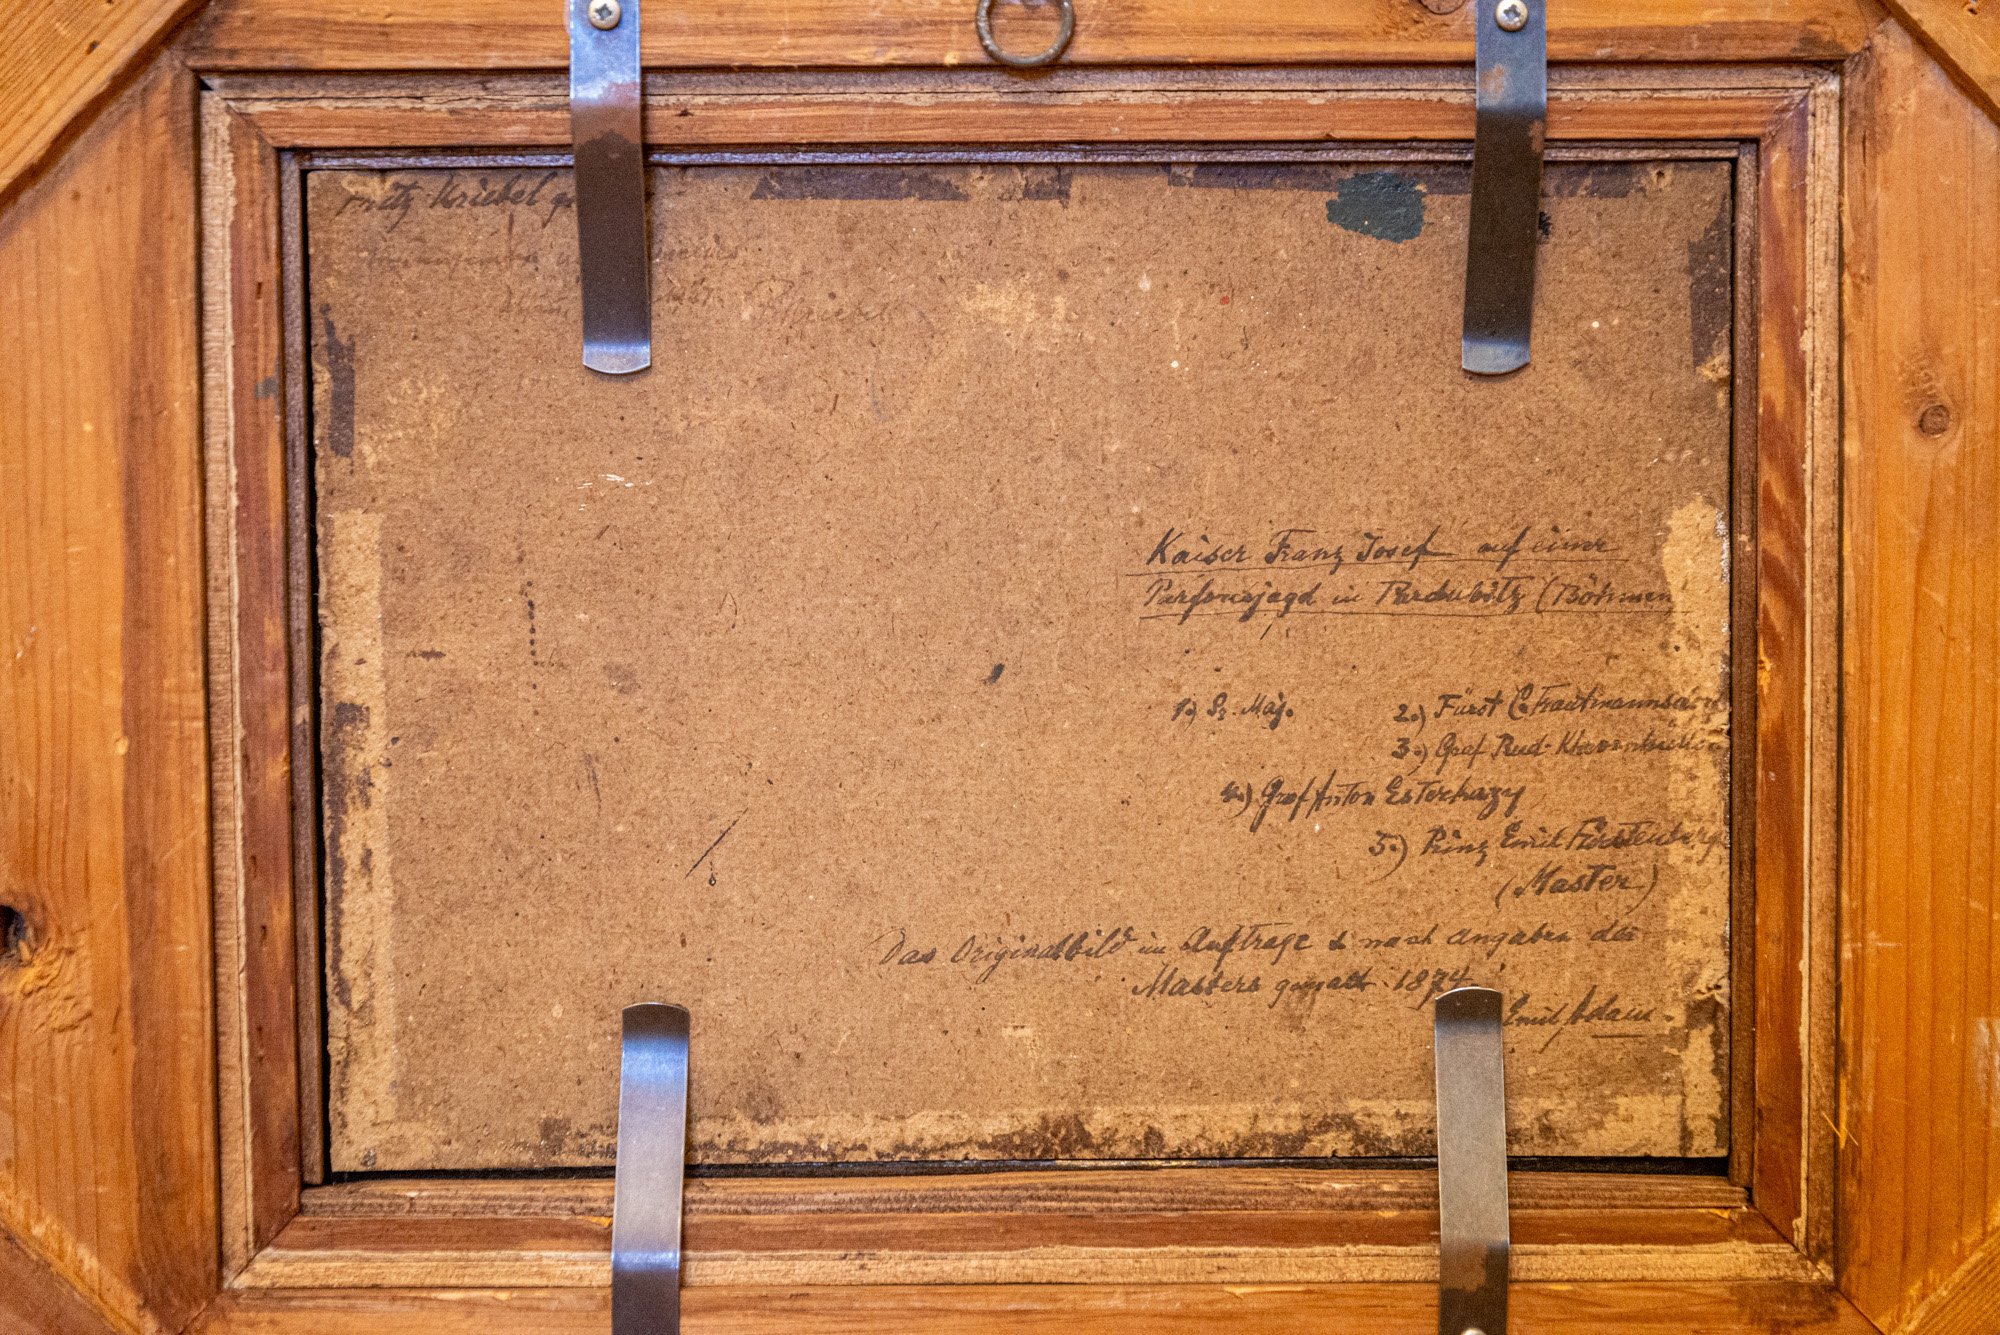 Fritz Kriebel
Kaiser Franz Josef auf einer
Parforcejagd in Pardubitz (Böhmen
1.) Sr. Maj. 2.) Fürst C. Trautmannsd
3.) Graf Rud.
4.) Graf Anton Esterhazy
5.) Prinz Emil Fürstenberg
(Master)
Das Originalbild im Auftrage & nach Angaben des
Masters gemalt 1874.
Emil Adam.